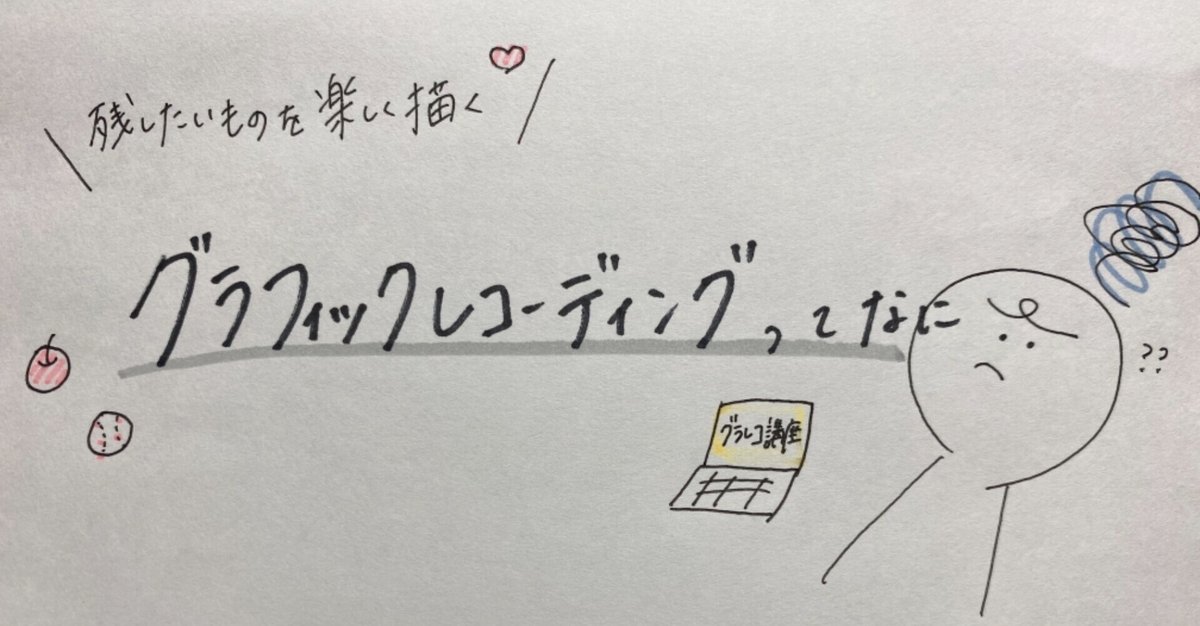 残したいものを楽しく描く
グラフィックレコーディングってなに
??
グラレコ講座